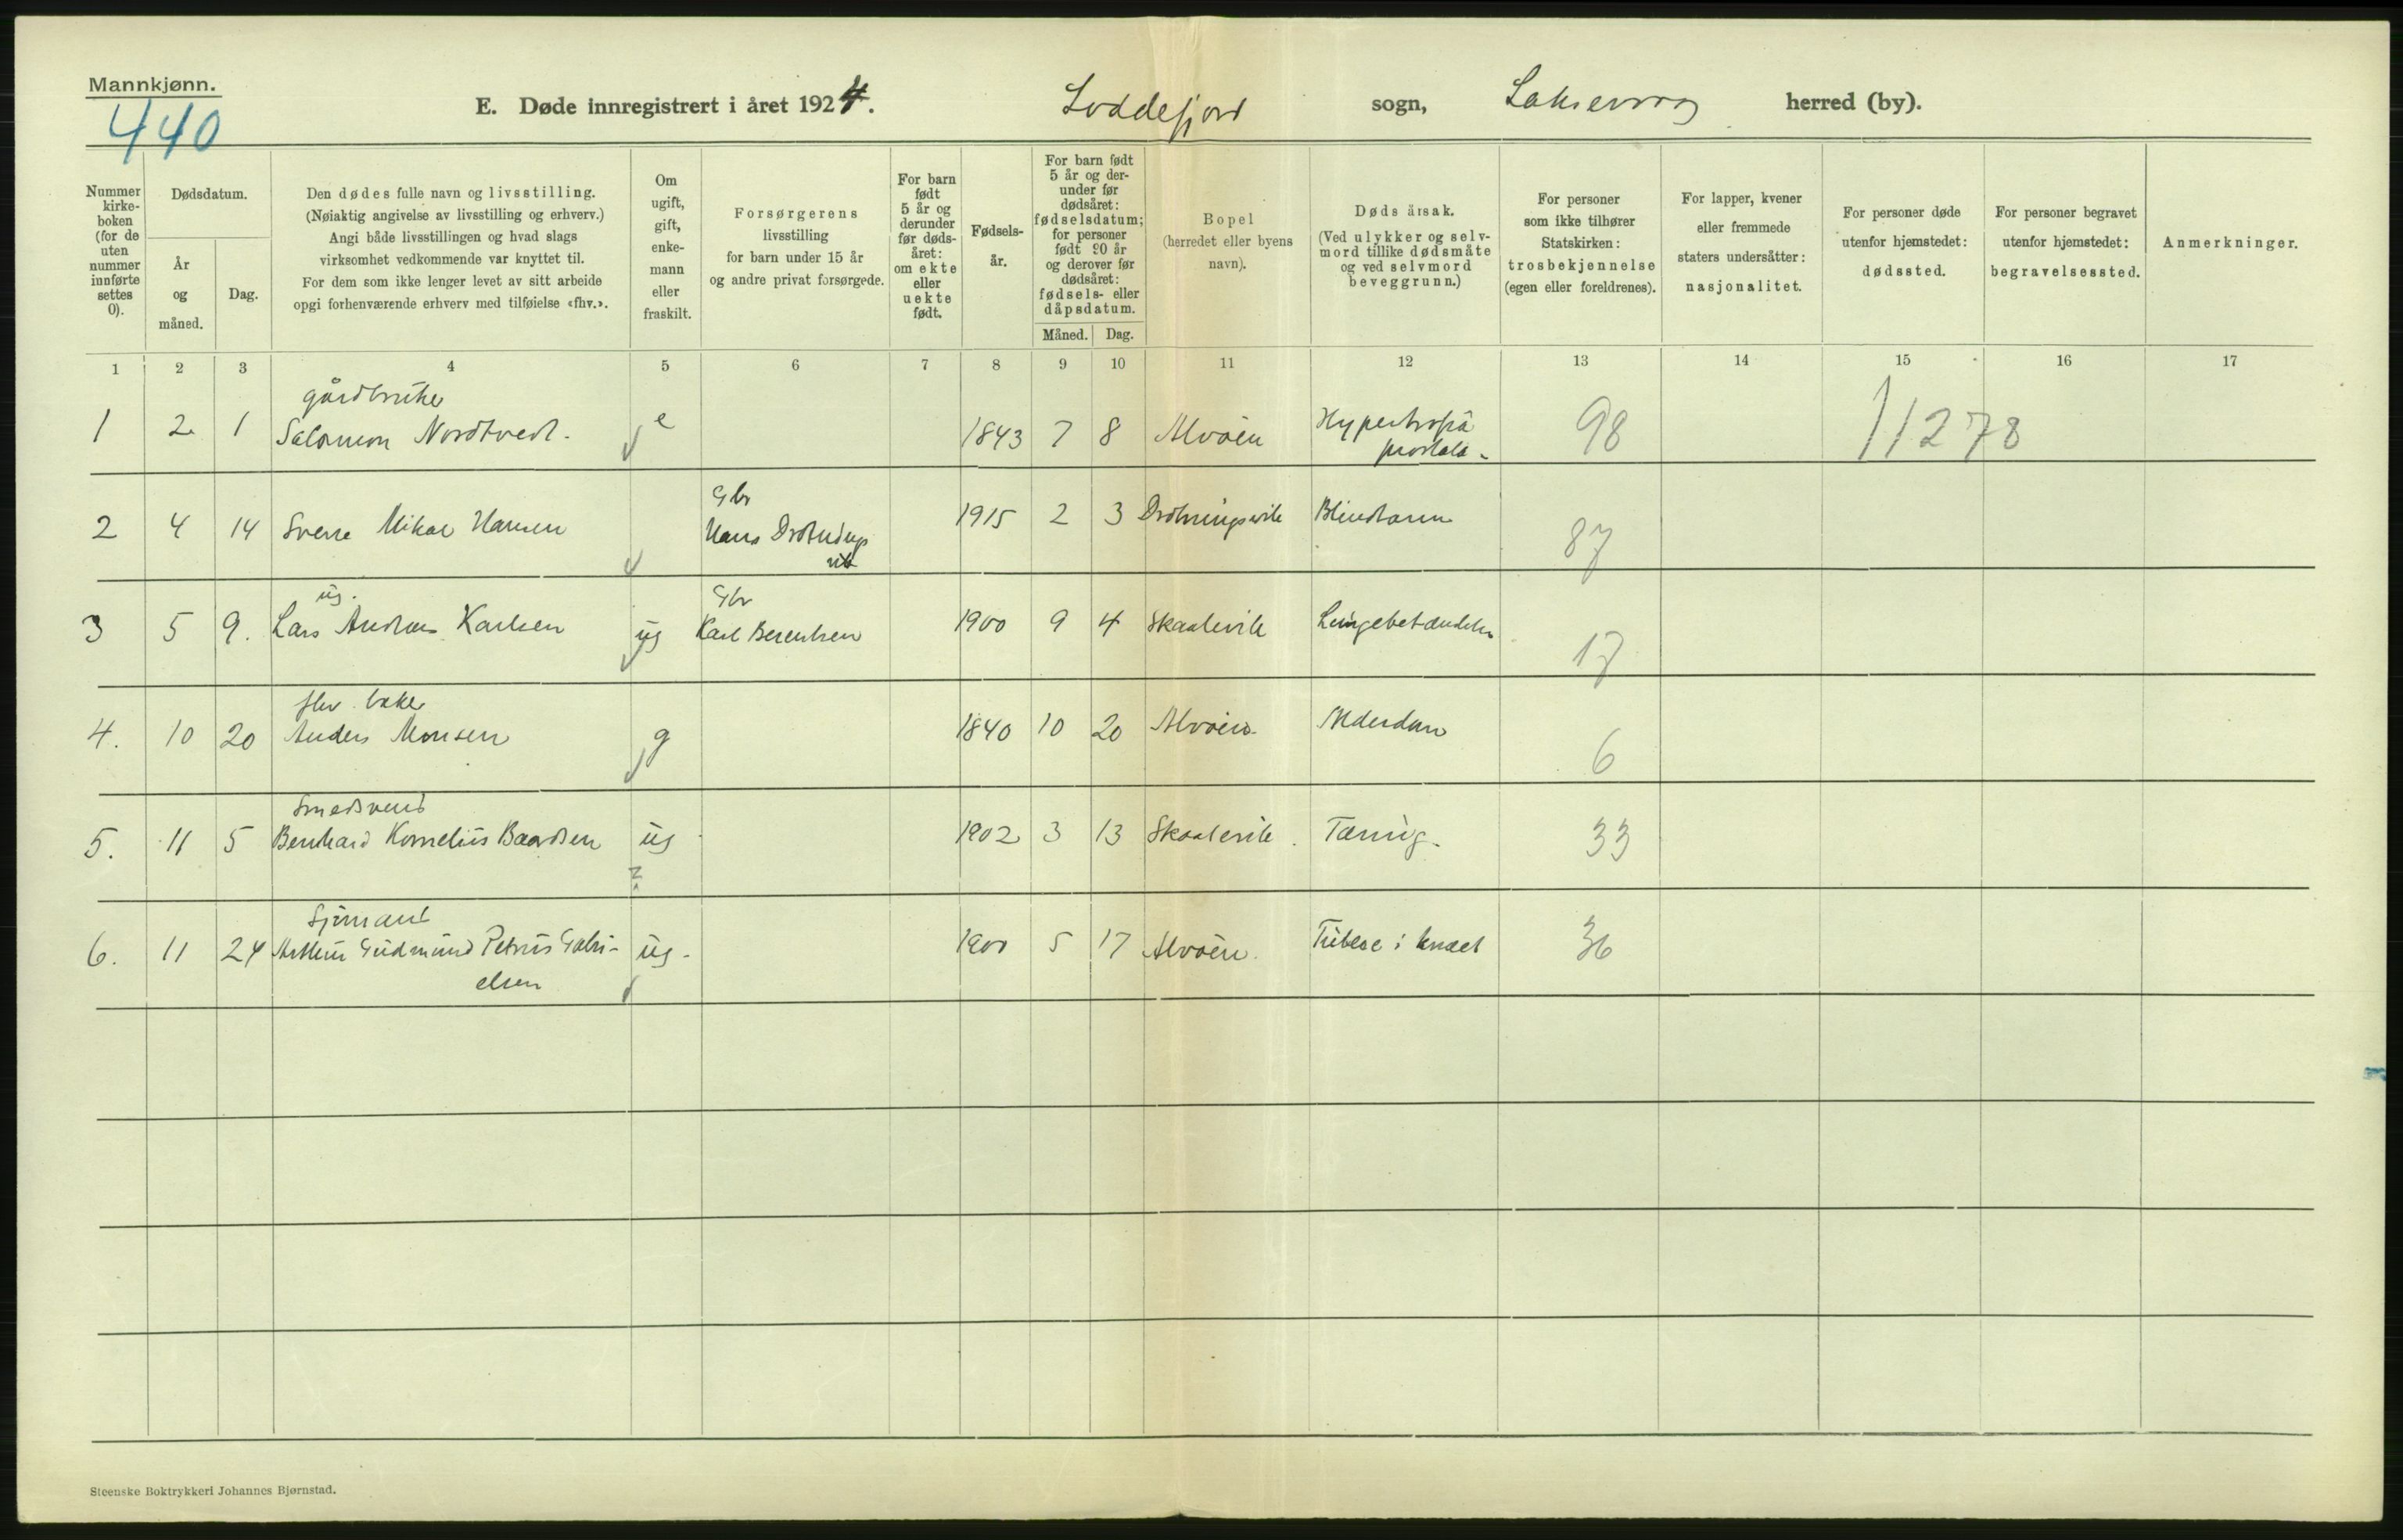 Mannkjønn.
440
E. Døde innregistrert i året 1924. Loddefjord sogn, Laksevaag herred (by).
Nummer
kirke-
boken
(for de
uten
nummer
innførte
settes
0).
Dødsdatum.
År
og
måned.
Dag.
Den dødes fulle navn og livsstilling.
(Nøiaktig angivelse av livsstilling og erhverv.)
Angi både livsstillingen og hvad slags
virksomhet vedkommende var knyttet til.
For dem som ikke lenger levet av sitt arbeide
opgi forhenværende erhverv med tilføielse «fhv.».
Om
ugift,
gift,
enke-
mann
eller
fraskilt.
Forsørgerens
livsstilling
for barn under 15 år
og andre privat forsørgede.
For barn
født
5 år og
derunder
før døds-
året:
om ekte
eller
uekte
født.
Fødsels-
år.
For barn født
5 år og der-
under før
dødsåret:
fødselsdatum;
for personer
født 90 år
og derover før
dødsåret:
fødsels- eller
dåpsdatum.
Måned. Dag.
Bopel
(herredet eller byens
navn).
Dødsårsak.
(Ved ulykker og selv-
mord tillike dødsmåte
og ved selvmord
beveggrunn.)
For personer
som ikke tilhører
Statskirken:
trosbekjennelse
(egen eller foreldrenes).
For lapper, kvener
eller fremmede
staters undersåtter:
nasjonalitet.
For personer døde
utenfor hjemstedet:
dødssted.
For personer begravet
utenfor hjemstedet:
begravelsessted.
Anmerkninger.
1 2 3 4 5 6 7 8 9 10 11 12 13 14 15 16 17
gårdbruker
1 2 1 Salomon Nordtvedt. e 1843 7 8 Alvøen Hypertrofia 98 11278
prostata
Gbr
2 4 14 Sverre Mikal Hansen Hans Drotnings 1915 2 3 Drotningsvik Blindtarm 87
vik
ug. Gbr
3 5 9. Lars Andreas Karlsen ug Karl Berentsen 1900 9 4 Skaalevik Lungebetændelse 17
fhv. baker
4. 10 20 Anders Monsen g 1840 10 20 Alvøen Alderdom 6
Smedsvend
5. 11 5 Bernhard Kornelius Baardsen ug 1902 3 13 Skaalevik. Tæring. 33
Sjømand
6. 11 24 Arthur Gudmund Petrus Gabri- ug. 1900 5 17 Alvøen. Tuberc i knæet 36
elsen
Steenske Boktrykkeri Johannes Bjørnstad.